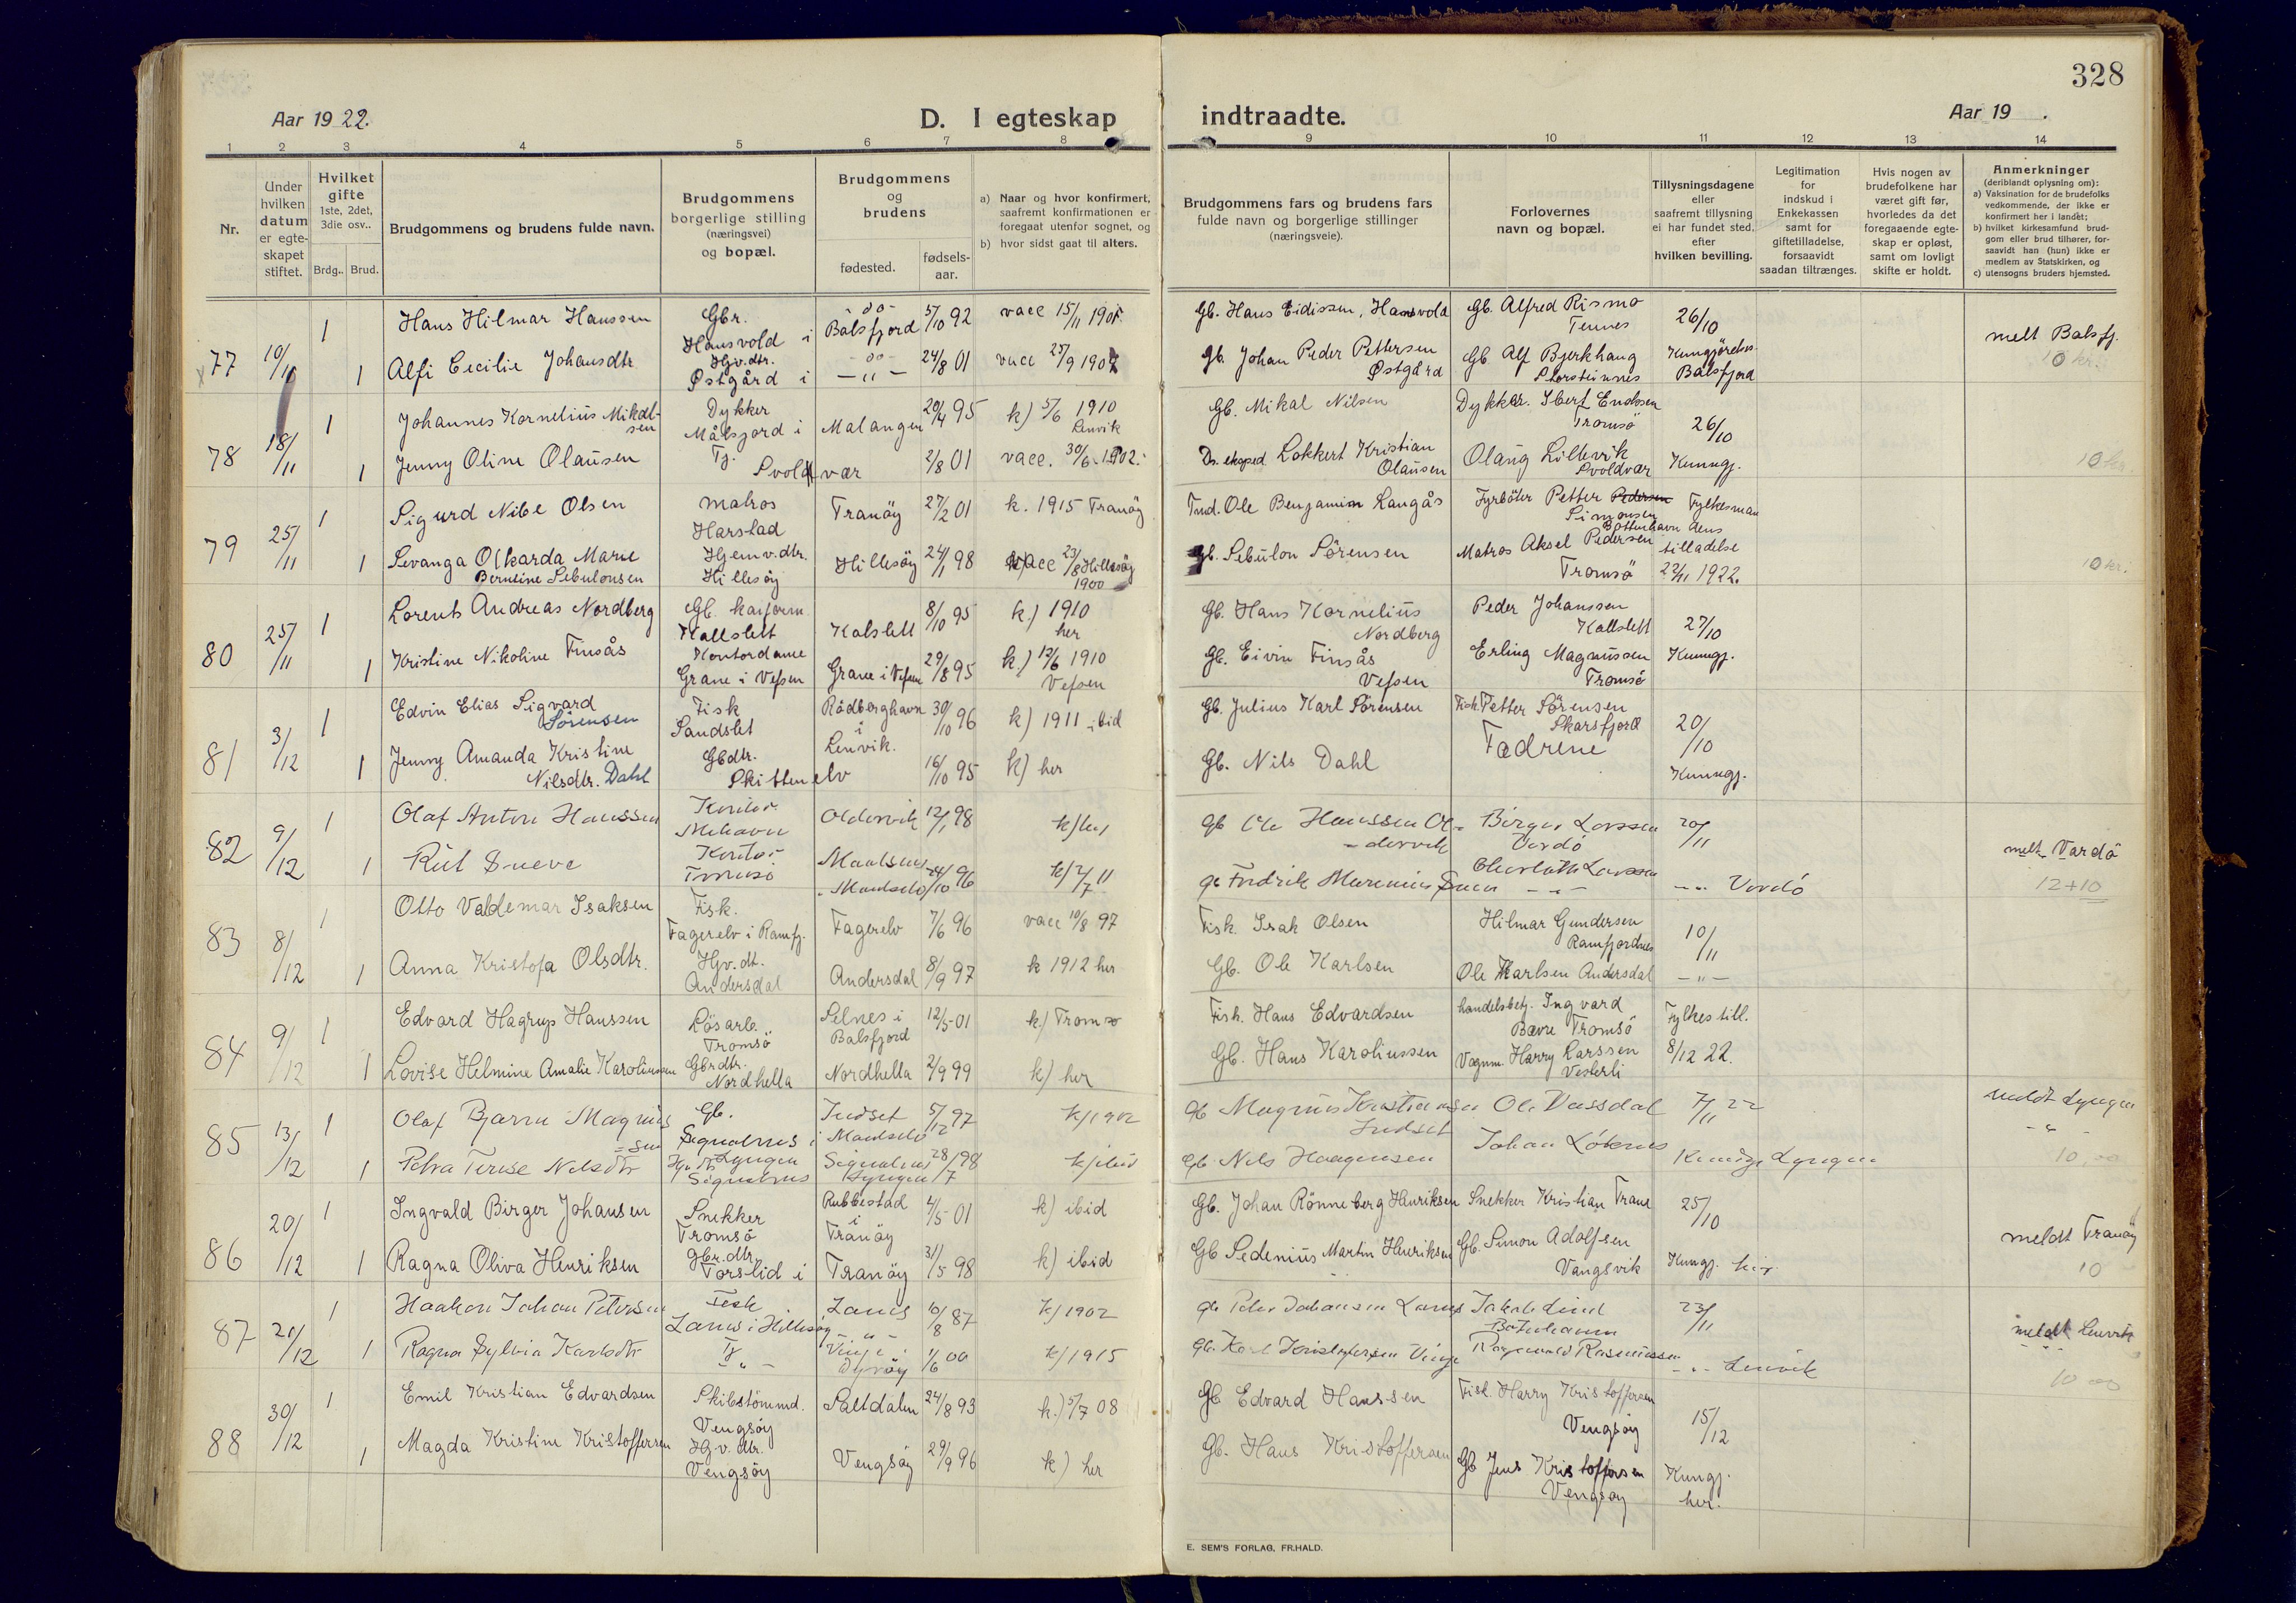 328
Aar 1922.
D. I egteskap indtraadte.
Aar 19 .
1 2 3 4 5 6 7 8 9 10 11 12 13 14
Nr.
Under hvilken datum er egteskapet stiftet.
Hvilket gifte 1ste, 2det, 3die osv..
Brdg.. Brud.
Brudgommens og brudens fulde navn.
Brudgommens borgerlige stilling (næringsvei) og bopæl.
Brudgommens og brudens
fødested.
fødsels-aar.
a) Naar og hvor konfirmert, saafremt konfirmationen er foregaat utenfor sognet, og
b) hvor sidst gaat til alters.
Brudgommens fars og brudens fars fulde navn og borgerlige stillinger (næringsveie).
Forlovernes navn og bopæl.
Tillysningsdagene eller saafremt tillysning ei har fundet sted, efter hvilken bevilling.
Legitimation for indskud i Enkekassen samt for giftetilladelse, forsaavidt saadan tiltrænges.
Hvis nogen av brudefolkene har været gift før, hvorledes da det foregaaende egteskap er opløst, samt om lovligt skifte er holdt.
Anmerkninger (deriblandt oplysning om):
a) Vaksination for de brudefolks vedkommende, der ikke er konfirmert her i landet;
b) hvilket kirkesamfund brudgom eller brud tilhører, forsaavidt han (hun) ikke er medlem av Statskirken, og
c) utensogns bruders hjemsted.
77 10/11 1 Hans Hilmar Hanssen Gbr. Hansvold i Balsfjord 5/10 92 vacc 15/11 1901. Gb. Hans Eidissen, Hansvold Gb. Alfred Rismo Tennes 26/10 melt Balsfj.
1 Alfi Cecilie Johansdtr Hjv.dtr. Østgård i -"- 24/8 01 vacc 25/9 1907 Gb. Johan Peder Pettersen Østgård Gb Alf Bjerkhaug Storsteinnes Kungjørelse Balsfjord 10 kr.
78 18/11 1 Johannes Kornelius Mikalsen Dykker Målsjord i Malangen 20/4 95 k) 5/6 1910 Lenvik Gb. Mikal Nilsen Dykker. Sbert Enoksen Tromsö 26/10
1 Jenny Oline Olaüsen Tj. Svoldvær 2/8 01 vacc. 30/6 1902. Ds. eksped. Lokkert Kristian Olaüsen Olaug Lillevik Svoldvær Kunngj. 10 kr.
79 25/11 1 Sigurd Nibe Olsen Matros Harstad Tranöy 27/2 01 k. 1915 Tranöy Tmd. Ole Benjamin Langås Fyrböter Petter Pedersen Simonsen Bottenhavn Fylkesman dens
1 Sevanga Olkarda Marie Berntine Sebulonsen Hjemv.dtr. Hillesöy Hillesöy 24/1 98 vacc 23/8 Hillesöy 1900 Gb. Sebulon Sörensen Matros Aksel Pedersen Tromsö tilladelse 22/11 1922. 10 kr.
80 25/11 1 Lorents Andreas Nordberg Gb. Kallslett Kalslett 8/10 95 k.) 1910 her Gb. Hans Kornelius Nordberg Peder Johanssen Kallslett 27/10
1 Kristine Nikoline Finsås Kontordame Grane i Vefsen Grane i Vefsen 29/8 95 k.) 12/6 1910 Vefsen Gb. Eivin Finsås Vefsen Erling Magnüssen Tromsö Kunngj.
81 3/12 1 Edvin Elias Sigvard Sörensen Fisk Sandslet Rödberghavn i Lenvik. 30/10 96 k) 1911 ibid Gb. Julius Karl Sörensen Fisk. Petter Sörensen Skarsfjord 20/10
1 Jenny Amanda Kristine Nilsdtr. Dahl Gbdtr. Skittenelv 16/10 95 k) her Gb. Nils Dahl Fædrene Kunngj.
82 9/12 1 Olaf Anton Hanssen Mehavn Oldervik 12/1 98 k) her Gb Ole Hanssen Oldervik Birger Larssen Vardö 20/11 melt Vardö
1 Rut Sneve Kontor Tromsö Maalsnes Maalselv 24/10 96 k) 2/7 11 Gb Fredrik Marenius Sneve Charlotte Larssen -"- -"- Vardö 12+10
83 8/12 1 Otto Valdemar Isaksen Fisk. Fagerelv i Ramfj. Fagerelv 7/6 96 vacc 10/8 97 Fisk. Isak Olsen Hilmar Gundersen Ramfjordnes 10/11
1 Anna Kristofa Olsdtr. Hjv.dt. Andersdal Andersdal 8/9 97 k 1912 her Gb. Ole Karlsen Ole Karlsen Andersdal -"-
84 9/12 1 Edvard Hagrup Hanssen Lösarb. Tromsö Selnes i Balsfjord 12/5 01 k.) Tromsø Fisk. Hans Edvardsen handelsbetj. Ingvard Bavre Tromsö Fylkes till.
1 Lovise Helmine Amalie Karoliussen Gbrdtr. Nordhella Nordhella 2/9 99 k) her Gb. Hans Karoliussen Vognm. Harry Larssen Vesterli 8/12 22.
85 13/12 1 Olaf Bjarne Magnussen Gb. Signalnes i Lyngen Indset i Maalselv 5/12 97 k) 1912 Gb Magnus Kristiansen Indset Ole Dassdal 7/11 22 meldt Lyngen
1 Petra Terese Nilsdtr Hjv dtr Signalnes Signalnes Lyngen 28/7 98 k) ibid Gb. Nils Haagensen Johan Lökenes Kunngj. Lyngen 10,00
86 20/12 1 Ingvald Birger Johansen Snekker Tromsö Rubbestad i Tranöy 4/5 01 k) ibid Gb. Johan Rönneberg Henriksen Snekker Kristian Trane 25/10 meldt Tranöy
1 Ragna Oliva Henriksen Gbr.dtr. Torslid i Tranöy 31/5 98 k) ibid Gb Sedenius Martin Henriksen Gb. Simon Adolfsen Vangsvik Kungj. her. 10
87 20/12 1 Haakon Johan Petersen Fisk Lanes i Hillesøy Lanes 10/8 87 k) 1902 Gb Peter Johansen Lanes Jakob Lind Botnhavn 23/11 meldt Lenvik
1 Ragna Sylvia Karlsdtr Tj -"- Vinje i Dyröy 1/6 00 k) 1915 Gb. Karl Kristofersen Vinje Ragnvald Rasmüssen -"- Lenvik 10 00
88 30/12 1 Emil Kristian Edvardsen Skibstömmd. Vengsöy Saltdalen 24/8 93 k.) 5/7 08 Gb Edvard Hanssen Fisk. Harry Kristoffersen Vengsöy 15/12
1 Magda Kristine Kristoffersen Hj v. dtr. Vengsöy Vengsöy 29/9 96 k) her Gb. Hans Kristoffersen Gb Jens Kristoffersen Vengsøy Kungj. her.
E. SEM'S FORLAG, FR.HALD.